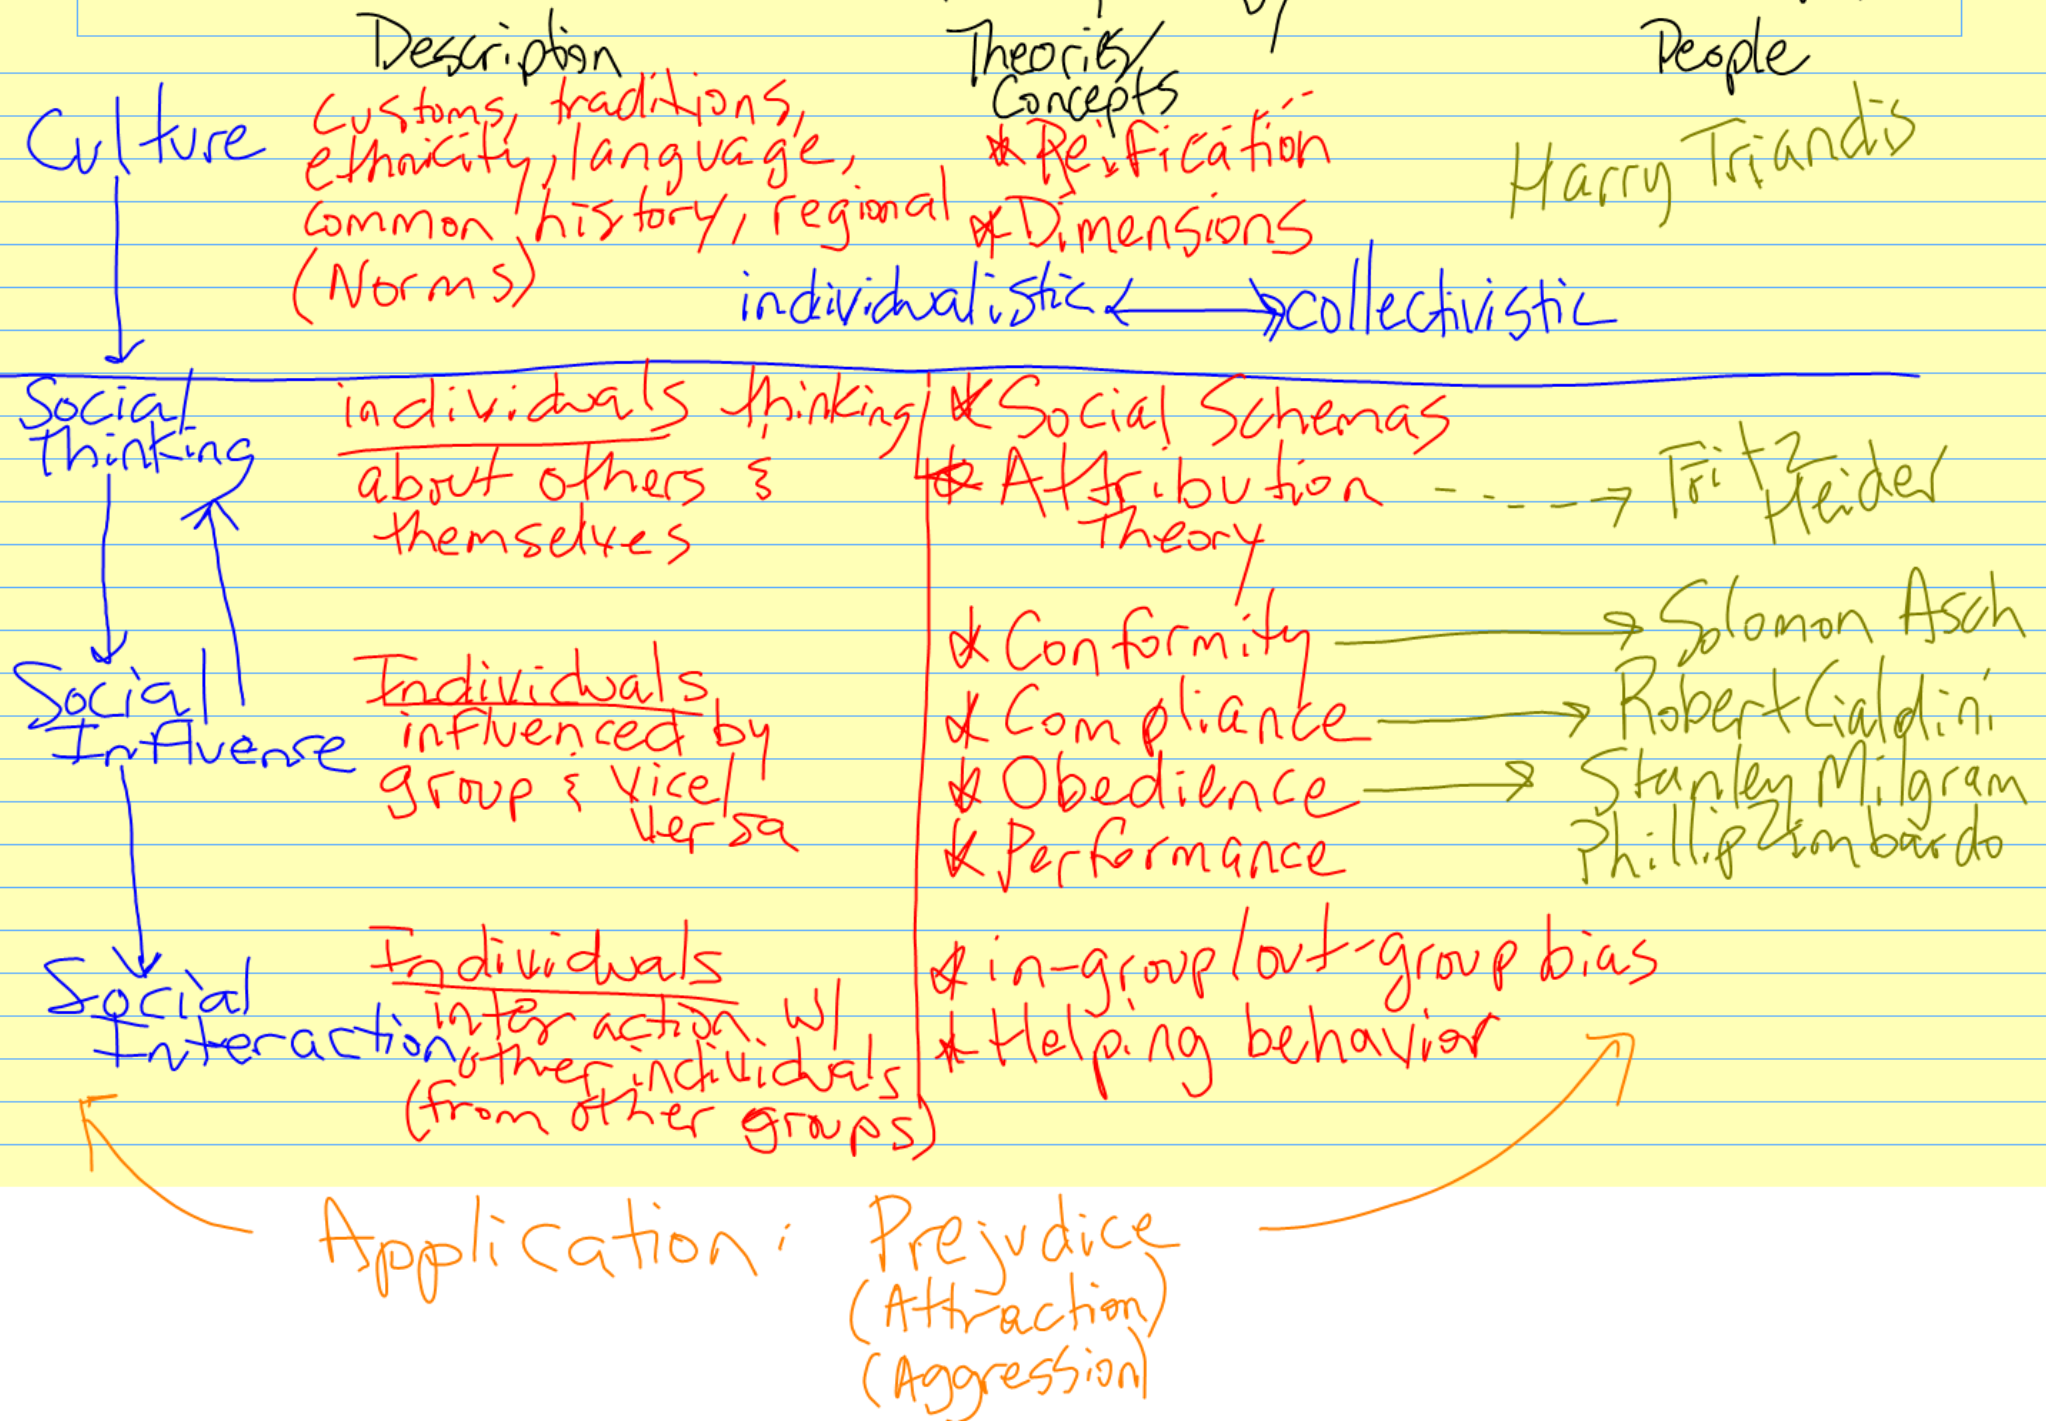 Description Theories/ People
Concepts
Culture
customs, traditions,
ethnicity, language,
common history, regional
(Norms)
* Reification
* Dimensions
individualistic <-> collectivistic
Harry Triandis
Social
Thinking
individuals thinking
about others &
themselves
* Social Schemas
* Attribution
Theory
Fritz
Heider
Social
Influence
Individuals
influenced by
group & vice/
versa
* Conformity → Solomon Asch
* Compliance → Robert Cialdini
* Obedience → Stanley Milgram
* Performance
Phillip Zimbardo
Social
Interaction
Individuals
interaction w/
other individuals
(from other groups)
* in-group/out-group bias
* Helping behavior
Application: Prejudice
(Attraction)
(Aggression)